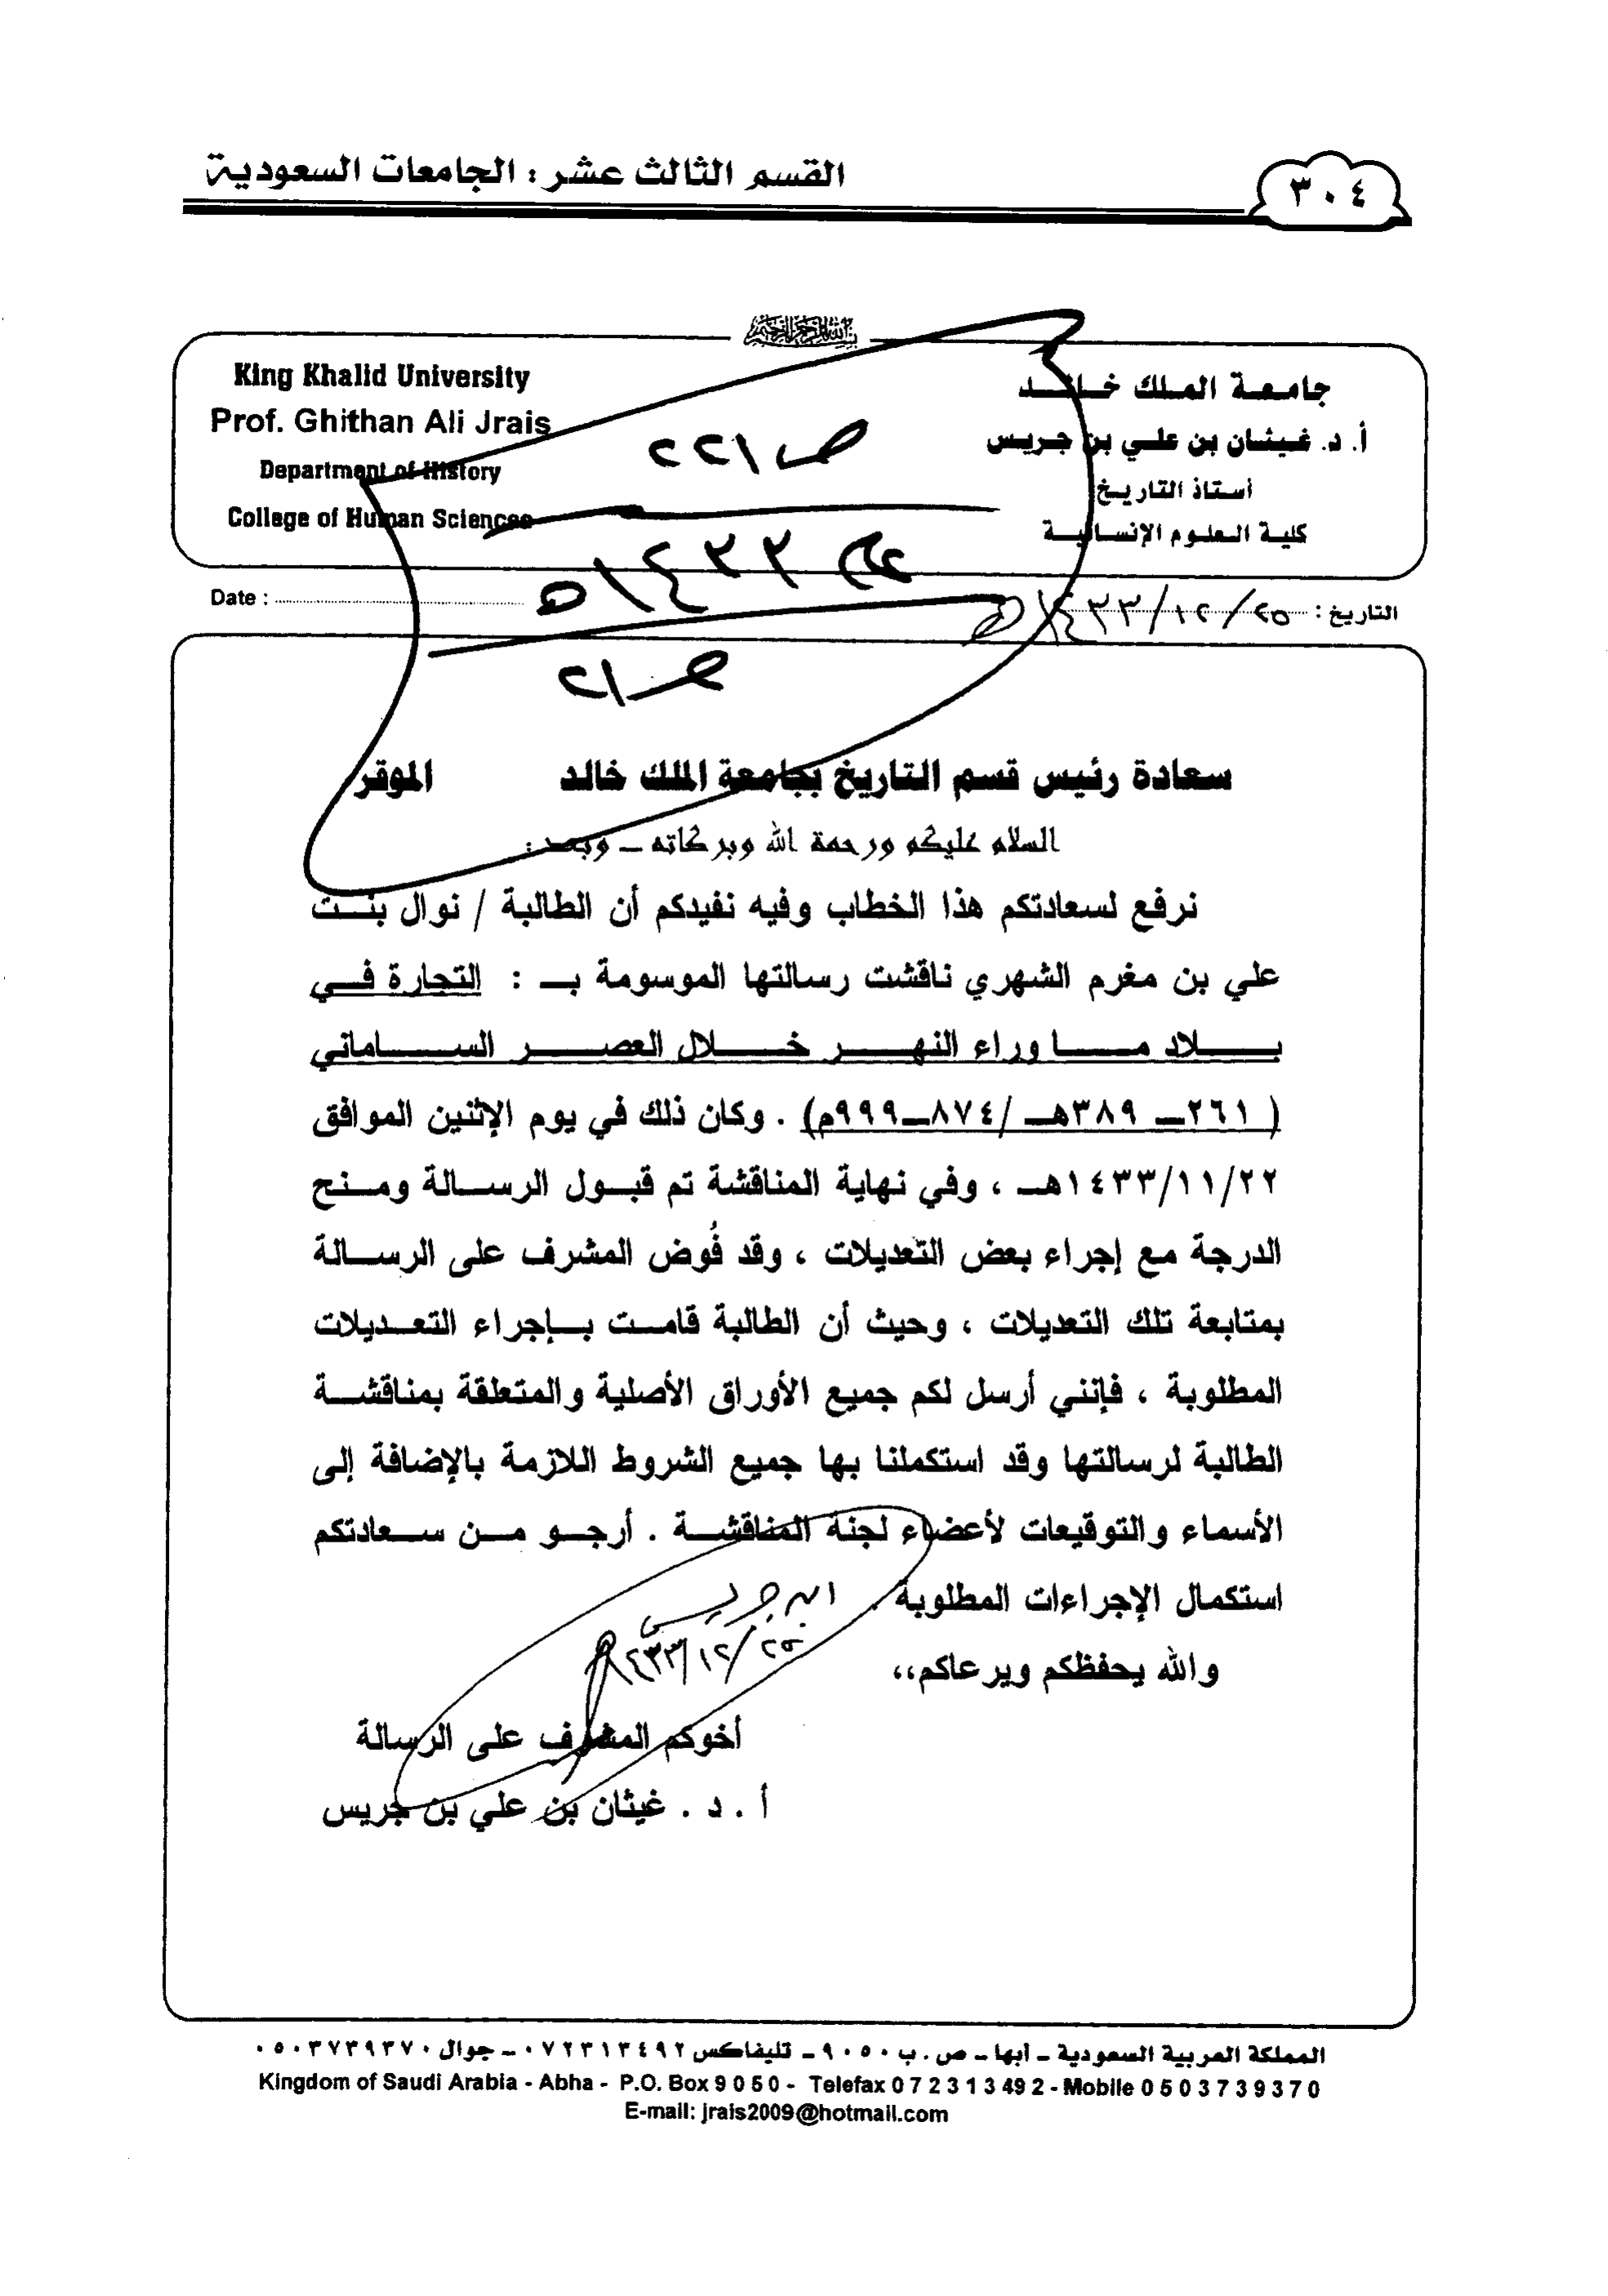 القسم الثالث عشر : الجامعات السعودية
٣٠٤
بسم الله الرحمن الرحيم
King Khalid University
Prof. Ghithan Ali Jrais
Department of History
College of Human Sciences
جامعة الملك خالد
أ. د. غيثان بن علي بن جريس
أستاذ التاريخ
كلية العلوم الإنسانية
ص ٢٢١
عام ١٤٣٣هـ
ص ٢١
Date :
التاريخ : ٢٥/١٢/١٤٣٣هـ
سعادة رئيس قسم التاريخ بجامعة الملك خالد الموقر
السلام عليكم ورحمة الله وبركاته ــ وبعد :
نرفع لسعادتكم هذا الخطاب وفيه نفيدكم أن الطالبة / نوال بنت
علي بن مغرم الشهري ناقشت رسالتها الموسومة بـ : التجارة في
بلاد ما وراء النهر خلال العصر الساماني
( ٢٦١ــ ٣٨٩هـ /٨٧٤ــ٩٩٩م) . وكان ذلك في يوم الإثنين الموافق
١٤٣٣/١١/٢٢هـ ، وفي نهاية المناقشة تم قبول الرسالة ومنح
الدرجة مع إجراء بعض التعديلات ، وقد فُوض المشرف على الرسالة
بمتابعة تلك التعديلات ، وحيث أن الطالبة قامت بإجراء التعديلات
المطلوبة ، فإنني أرسل لكم جميع الأوراق الأصلية والمتعلقة بمناقشة
الطالبة لرسالتها وقد استكملنا بها جميع الشروط اللازمة بالإضافة إلى
الأسماء والتوقيعات لأعضاء لجنة المناقشة . أرجو من سعادتكم
استكمال الإجراءات المطلوبة .
ابن جريس
٢٥/١٢/١٤٣٣هـ
والله يحفظكم ويرعاكم،،
أخوكم المشرف على الرسالة
أ . د . غيثان بن علي بن جريس
المملكة العربية السعودية ــ أبها ــ ص . ب ٩٠٥٠ ــ تليفاكس ٠٧٢٣١٣٤٩٢ ــ جوال ٠٥٠٣٧٣٩٣٧٠
Kingdom of Saudi Arabia - Abha - P.O. Box 9 0 5 0 - Telefax 0 7 2 3 1 3 49 2 - Mobile 0 5 0 3 7 3 9 3 7 0
E-mail: jrais2009@hotmail.com